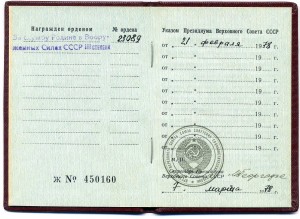 Награжден орденом
№ ордена
За службу Родине в Воору-
женных Силах СССР III степени
28089
Ж № 450160
Указом Президиума Верховного Совета СССР
от 21 февраля 1978 г.
от 19 г.
от 19 г.
от 19 г.
от 19 г.
от 19 г.
от 19 г.
М.П.
Секретарь Президиума
Верховного Совета СССР
7 марта